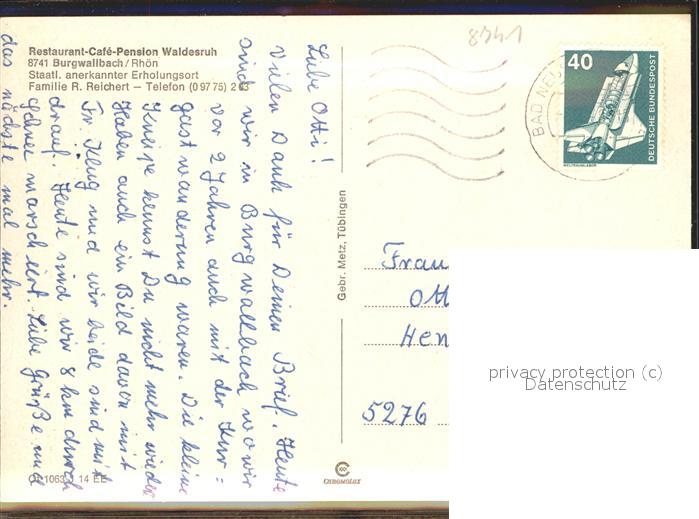 Restaurant-Café-Pension Waldesruh
8741 Burgwallbach/Rhön
Staatl. anerkannter Erholungsort
Familie R. Reichert — Telefon (0 97 75) 2
Liebe Otti!
Vielen Dank für Deinen Brief. Heute
sind wir in Burgwallbach wo wir
vor 2 Jahren auch mit der Kur=
gastwanderung waren. Die kleine
Kneipe kennst Du nicht mehr wieder
Haben auch ein Bild davon mit
Fr. und wir beide sind mit
drauf. Heute sind wir 8 km durch
Schnee marschiert. Liebe Grüße und
das nächste mal mehr.
Gebr. Metz, Tübingen
CHROMOLUX
8741
BAD NEU
40
DEUTSCHE BUNDESPOST
WELTRAUMLABOR
Frau
Ott
Hen
5276
privacy protection (c)
Datenschutz